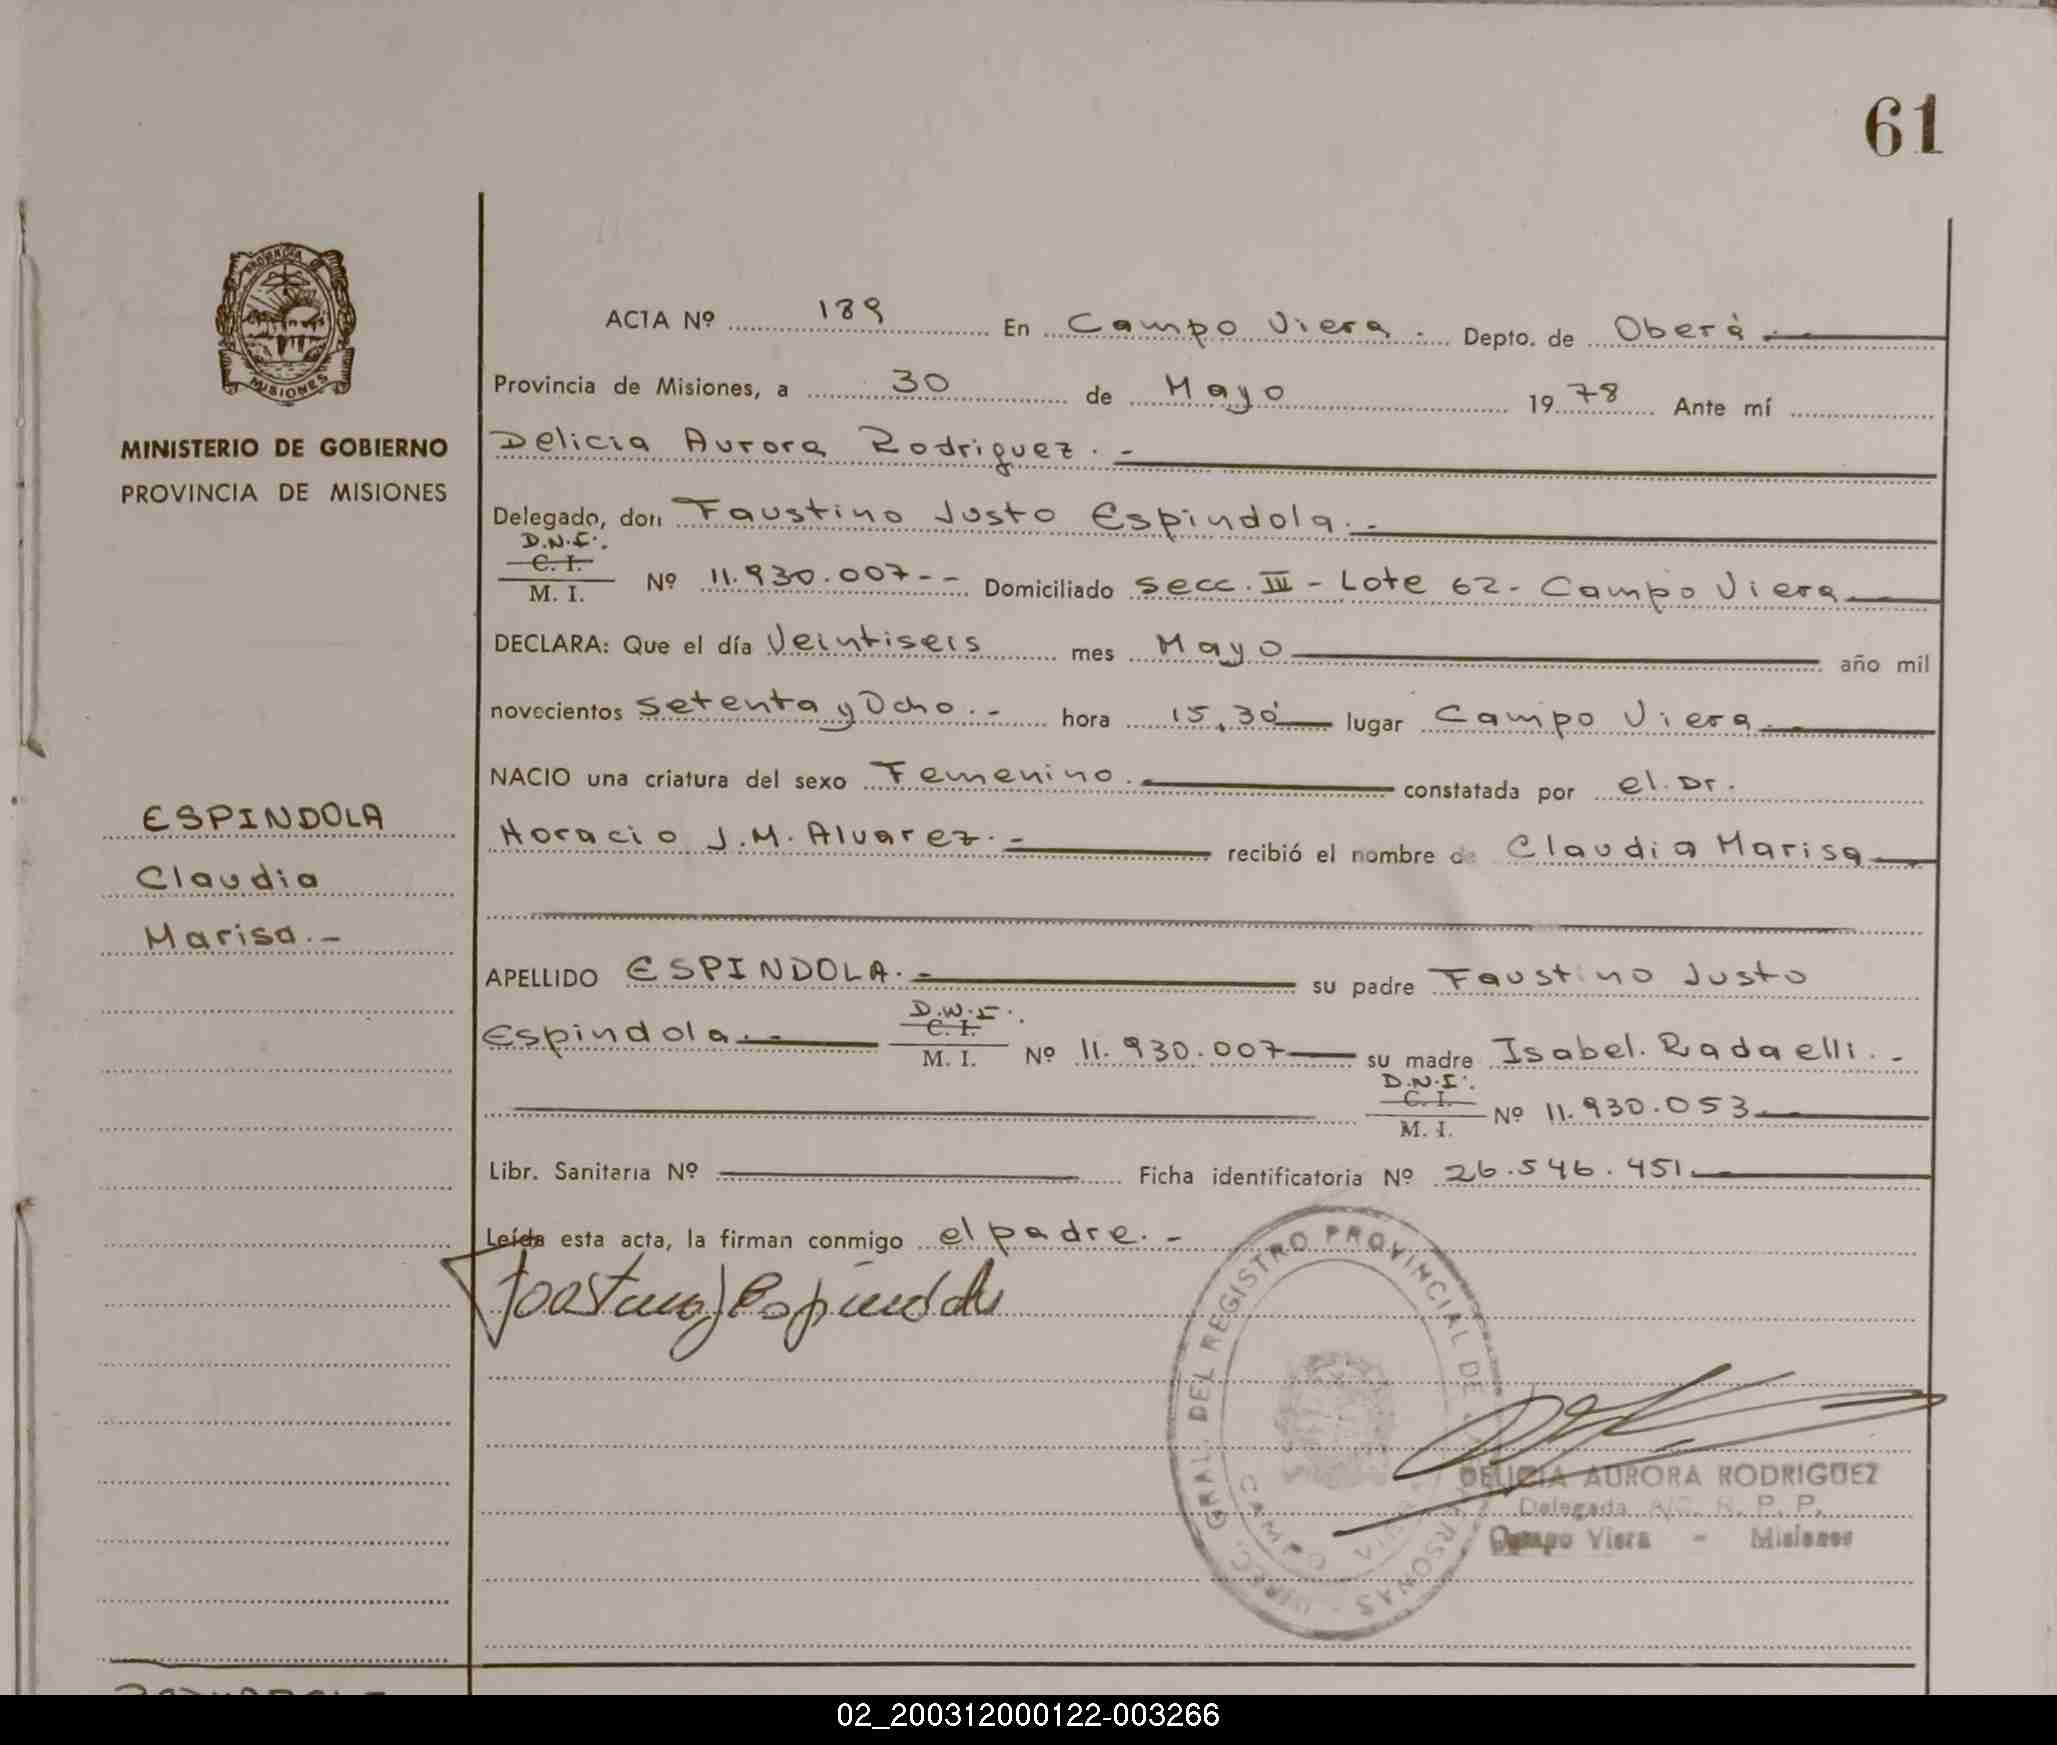 61
PROVINCIA DE
MISIONES
MINISTERIO DE GOBIERNO
PROVINCIA DE MISIONES
ESPINDOLA
Claudia
Marisa.-
ACTA Nº 189 En Campo Viera. Depto. de Oberá.-
Provincia de Misiones, a 30 de Mayo 1978 Ante mí
Delicia Aurora Rodriguez.-
Delegado, don Faustino Justo Espindola.-
D.N.I.
C. I.
M. I. Nº 11.930.007-- Domiciliado Secc. III - Lote 62- Campo Viera
DECLARA: Que el día Veintiseis mes Mayo año mil
novecientos Setenta y Ocho.- hora 15,30 lugar Campo Viera.-
NACIO una criatura del sexo Femenino. constatada por el. Dr.
Horacio J.M. Alvarez.- recibió el nombre de Claudia Marisa
APELLIDO ESPINDOLA.- su padre Faustino Justo
D.N.I.
C. I.
Espindola.- M. I. Nº 11.930.007 su madre Isabel. Radaelli.-
D.N.I.
C. I.
M. I. Nº 11.930.053
Libr. Sanitaria Nº Ficha identificatoria Nº 26.546.451.
Leída esta acta, la firman conmigo el padre.-
DIREC. GRAL. DEL REGISTRO PROVINCIAL DE LAS PERSONAS -
CAMPO VIERA
DELICIA AURORA RODRIGUEZ
Delegada A/C. R. P. P.
Campo Viera - Misiones
02_200312000122-003266